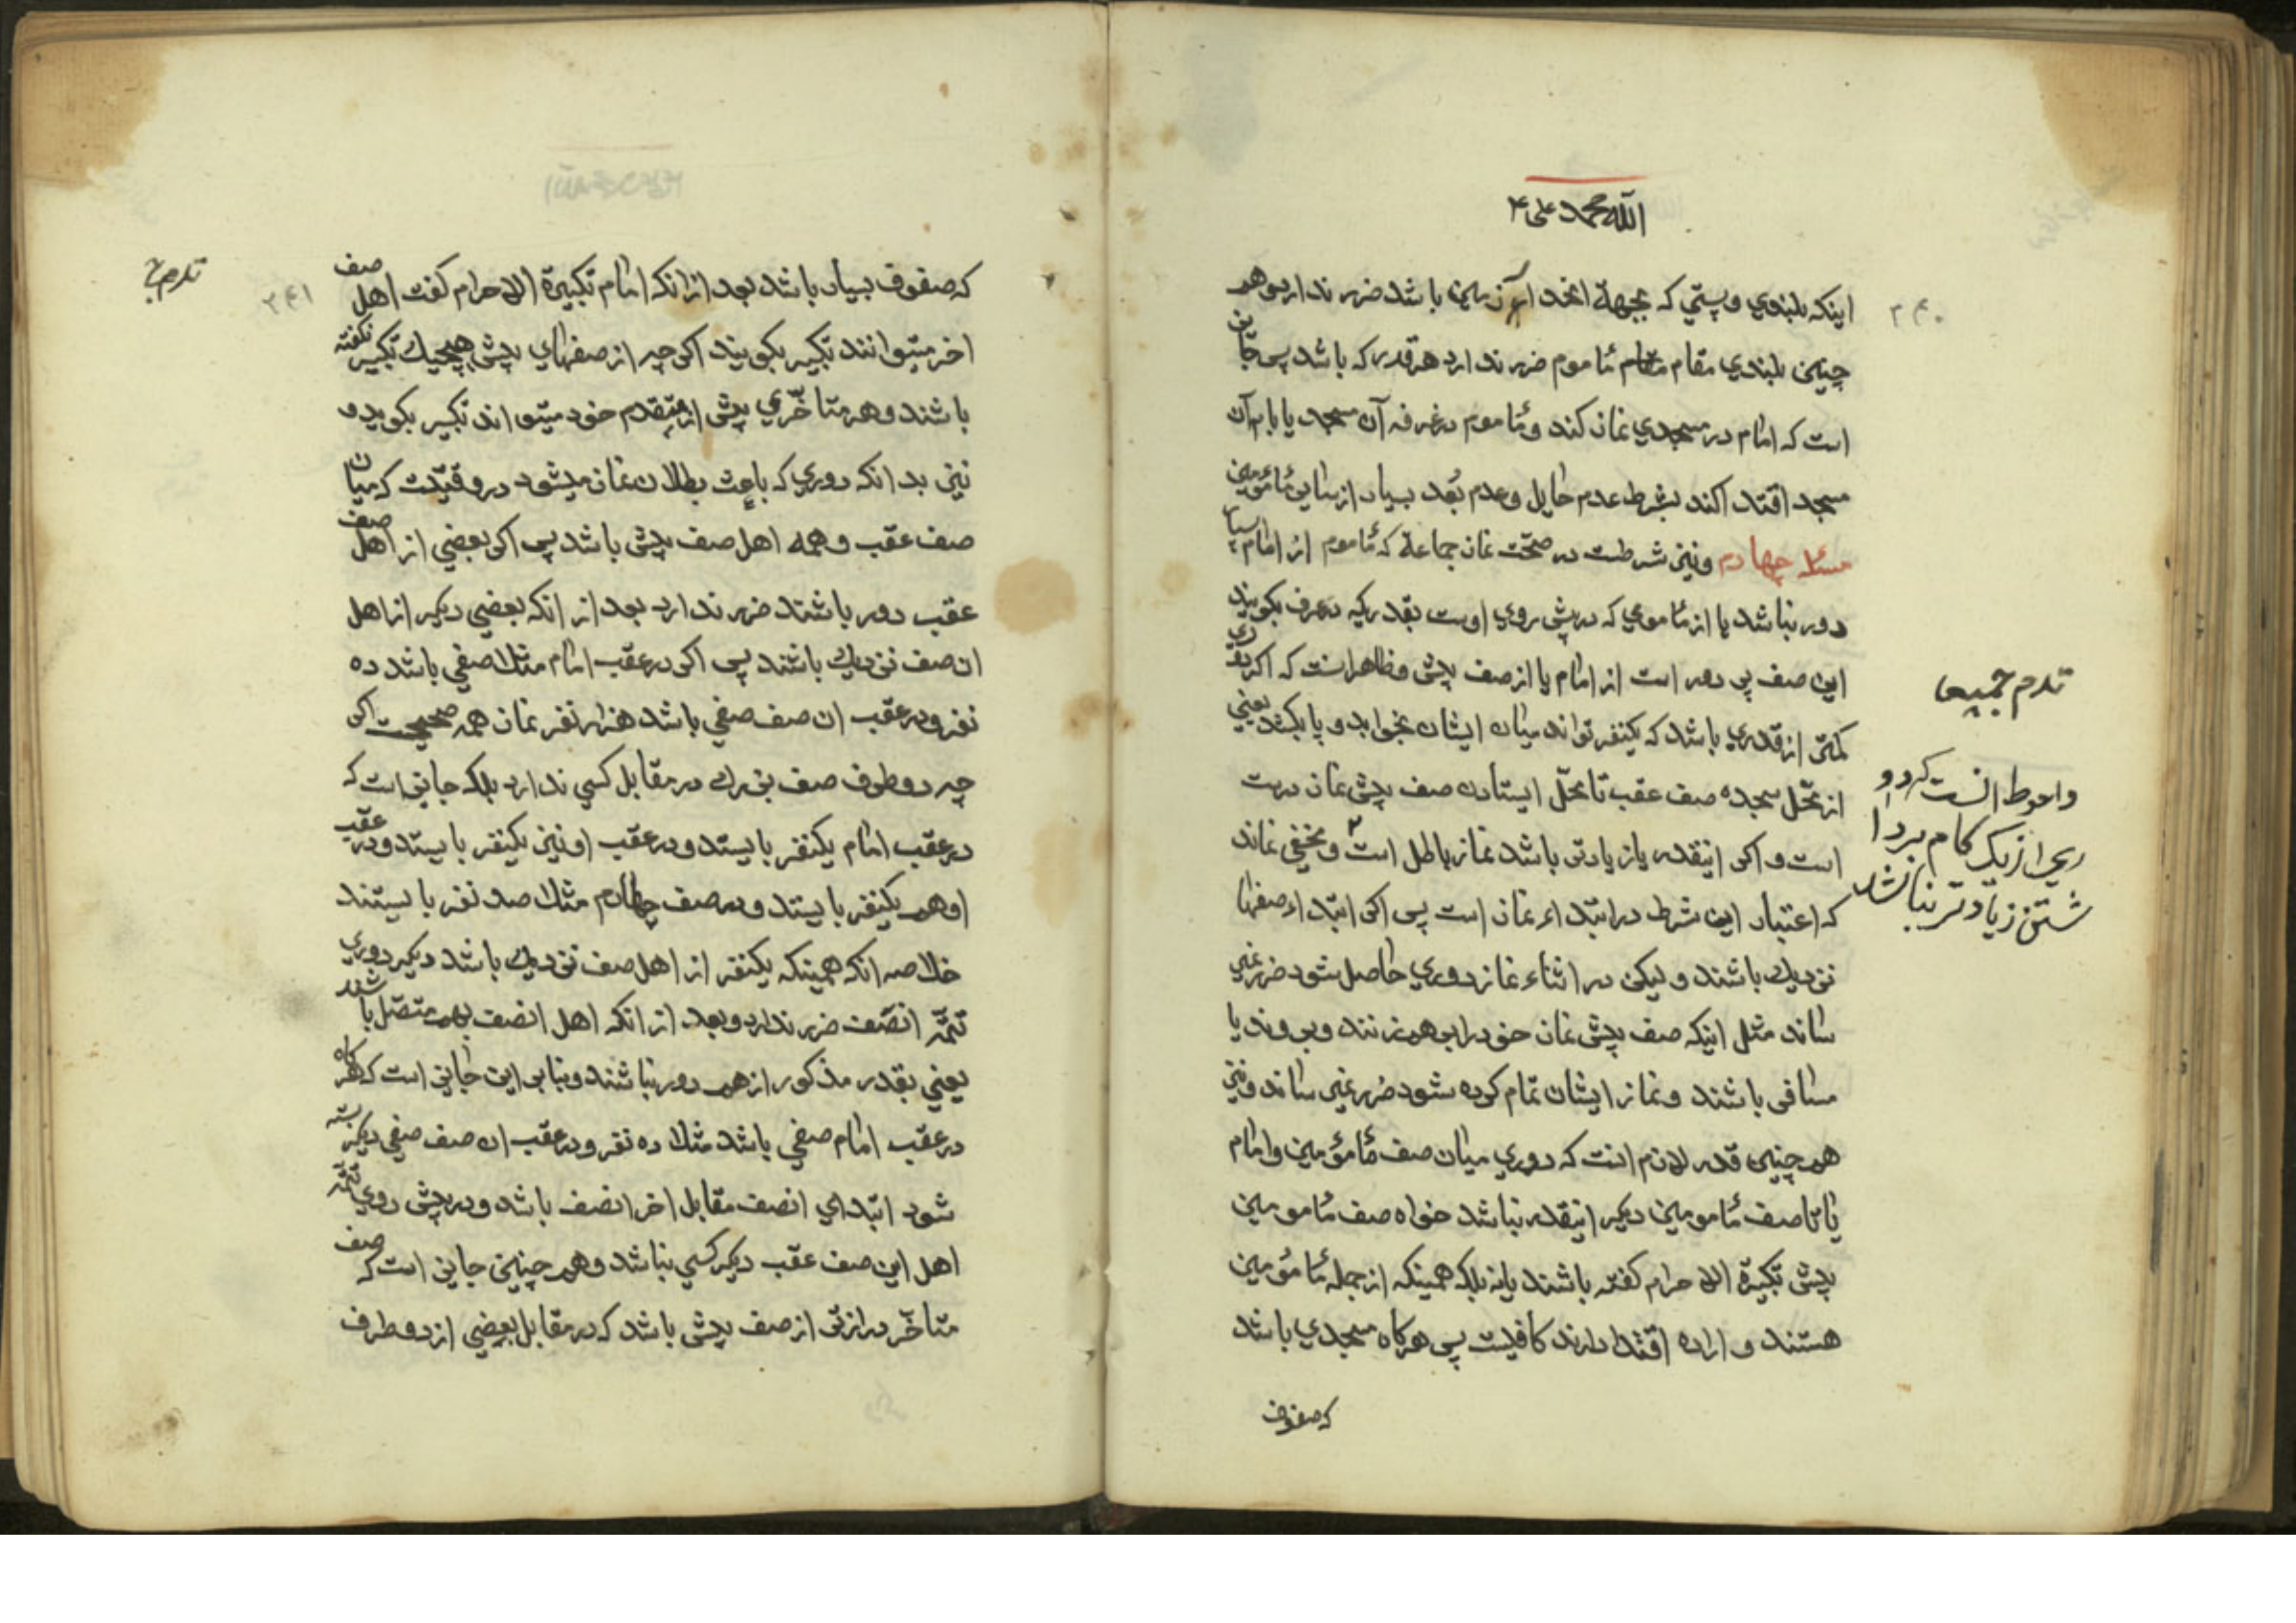 الله محمد علی ۴
۲۴۰
اینکه بلندی و پستی که بجهة انحدار زمین باشد ضرر ندارد و هم
چنین بلندی مقام مأموم ضرر ندارد هر قدر که باشد پس جایز
است که امام در مسجدی نماز کند و مأموم در غرفه آن مسجد یا بام آن
مسجد اقتدا کند بشرط عدم حایل و عدم بُعد بسیار از سایر مأمومین
مسئله چهارم و نیز شرطست در صحّت نماز جماعة که مأموم از امام بسیار
دور نباشد یا از مأمومی که در پیش روی اوست بقدریکه در عرف بکویند
این صف پر دور است از امام یا از صف پیش و ظاهر انست که اکر بقدری
کمتر از قدری باشد که یکنفر تواند میان ایشان بخوابد و پا بکشد یعنی
از محّل سجده صف عقب تا محّل ایستادن صف پیش نماز درست
است و اکر اینقدر یا زیادتر باشد نماز باطل است و مخفی نماند
که اعتبار این شرط در ابتداء نماز است پس اکر ابتداء صفها
نزدیك باشند و لیکن در اثناء نماز دوری حاصل شود ضرر نمی
رساند مثل اینکه صف پیش نماز خود را بر هم زنند و بروند یا
مسافر باشند و نماز ایشان تمام کرده شود ضرر نمی رساند و نیز
هم چنین قدر لازم انست که دوری میان صف مأمومین و امام
یا تا صف مأمومین دیکر اینقدر نباشد خواه صف مأمومین
پیش تکبیرة الاحرام کفته باشند یا نه بلکه همینکه از جمله مأمومین
هستند و اراده اقتدا دارند کافیست پس هرکاه مسجدی باشد
که صفوف
واحوط انست که دو
ری از یک کام بردا
شتن زیادتر نباشد
۲۴۱
که صفوف بسیار باشد بعد از انکه امام تکبیرة الاحرام کفت اهل صف
اخر میتوانند تکبیر بکویند اکر چه از صفهای پیش هیچیك تکبیر نکفته
باشند و هر متاخّری پیش از متقدم خود میتواند تکبیر بکوید و
نیز بدانکه دوری که باعث بطلان نماز میشود در وقتیست که میان
صف عقب و همه اهل صف پیش باشد پس اکر بعضی از اهل صف
عقب دور باشند ضرر ندارد بعد از انکه بعضی دیکر از اهل
ان صف نزدیك باشند پس اکر در عقب امام مثلا صفی باشد ده
نفر و در عقب ان صف صفی باشد هزار نفر نماز همه صحیحست اکر
چه دو طرف صف بزرك در مقابل کسی ندارد بلکه جایز است که
در عقب امام یکنفر بایستد و در عقب او نیز یکنفر بایستد و در عقب
او هم یکنفر بایستد و در صف چهارم مثلا صد نفر بایستند
خلاصه انکه همینکه یکنفر از اهل صف نزدیك باشد دیکر دوری
تتمّه انصف ضرر ندارد و بعد از انکه اهل انصف بهم متصّل باشند
یعنی بقدر مذکور از هم دور نباشند و بنابر این جایز است که هر کاه
در عقب امام صفی باشد مثلا ده نفر و در عقب ان صف صفی دیکر بسته
شود ابتدای انصف مقابل اخر انصف باشد و در پیش روی تتمّه
اهل این صف عقب دیکر کسی نباشد و هم چنین جایز است که صف
متاخّر درازتر از صف پیش باشد که در مقابل بعضی از دو طرف